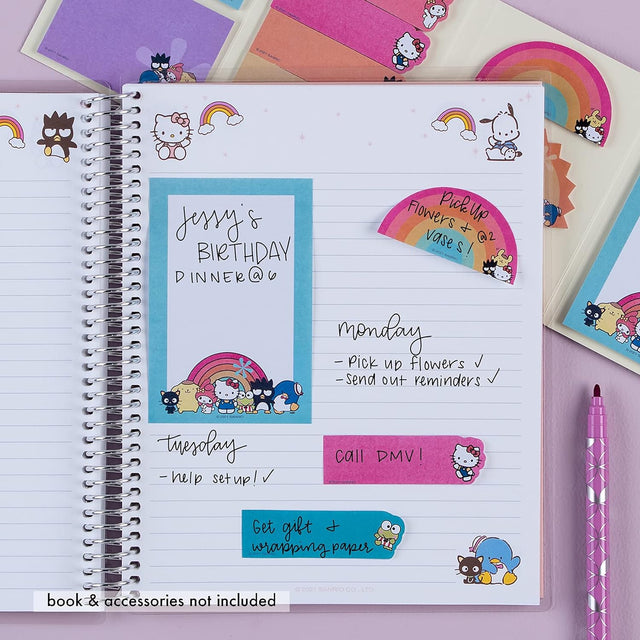 Jessy's
BIRTHDAY
DINNER @ 6
Pick Up
Flowers & @2
Vases!
monday
- Pick up flowers ✓
- Send out reminders ✓
tuesday
- help setup! ✓
Call DMV!
Get gift &
wrapping paper
© 2021 SANRIO CO., LTD.
book & accessories not included